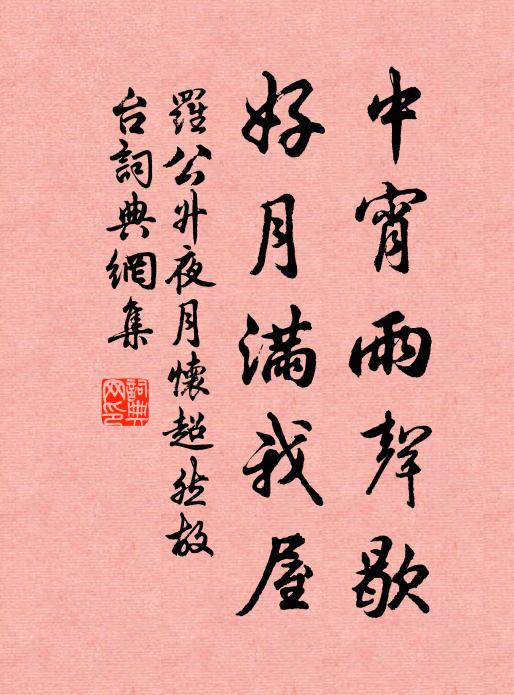 中宵雨聲歇
好月滿我屋
羅公升夜月懷超然故
台詞典網集
詞典网印